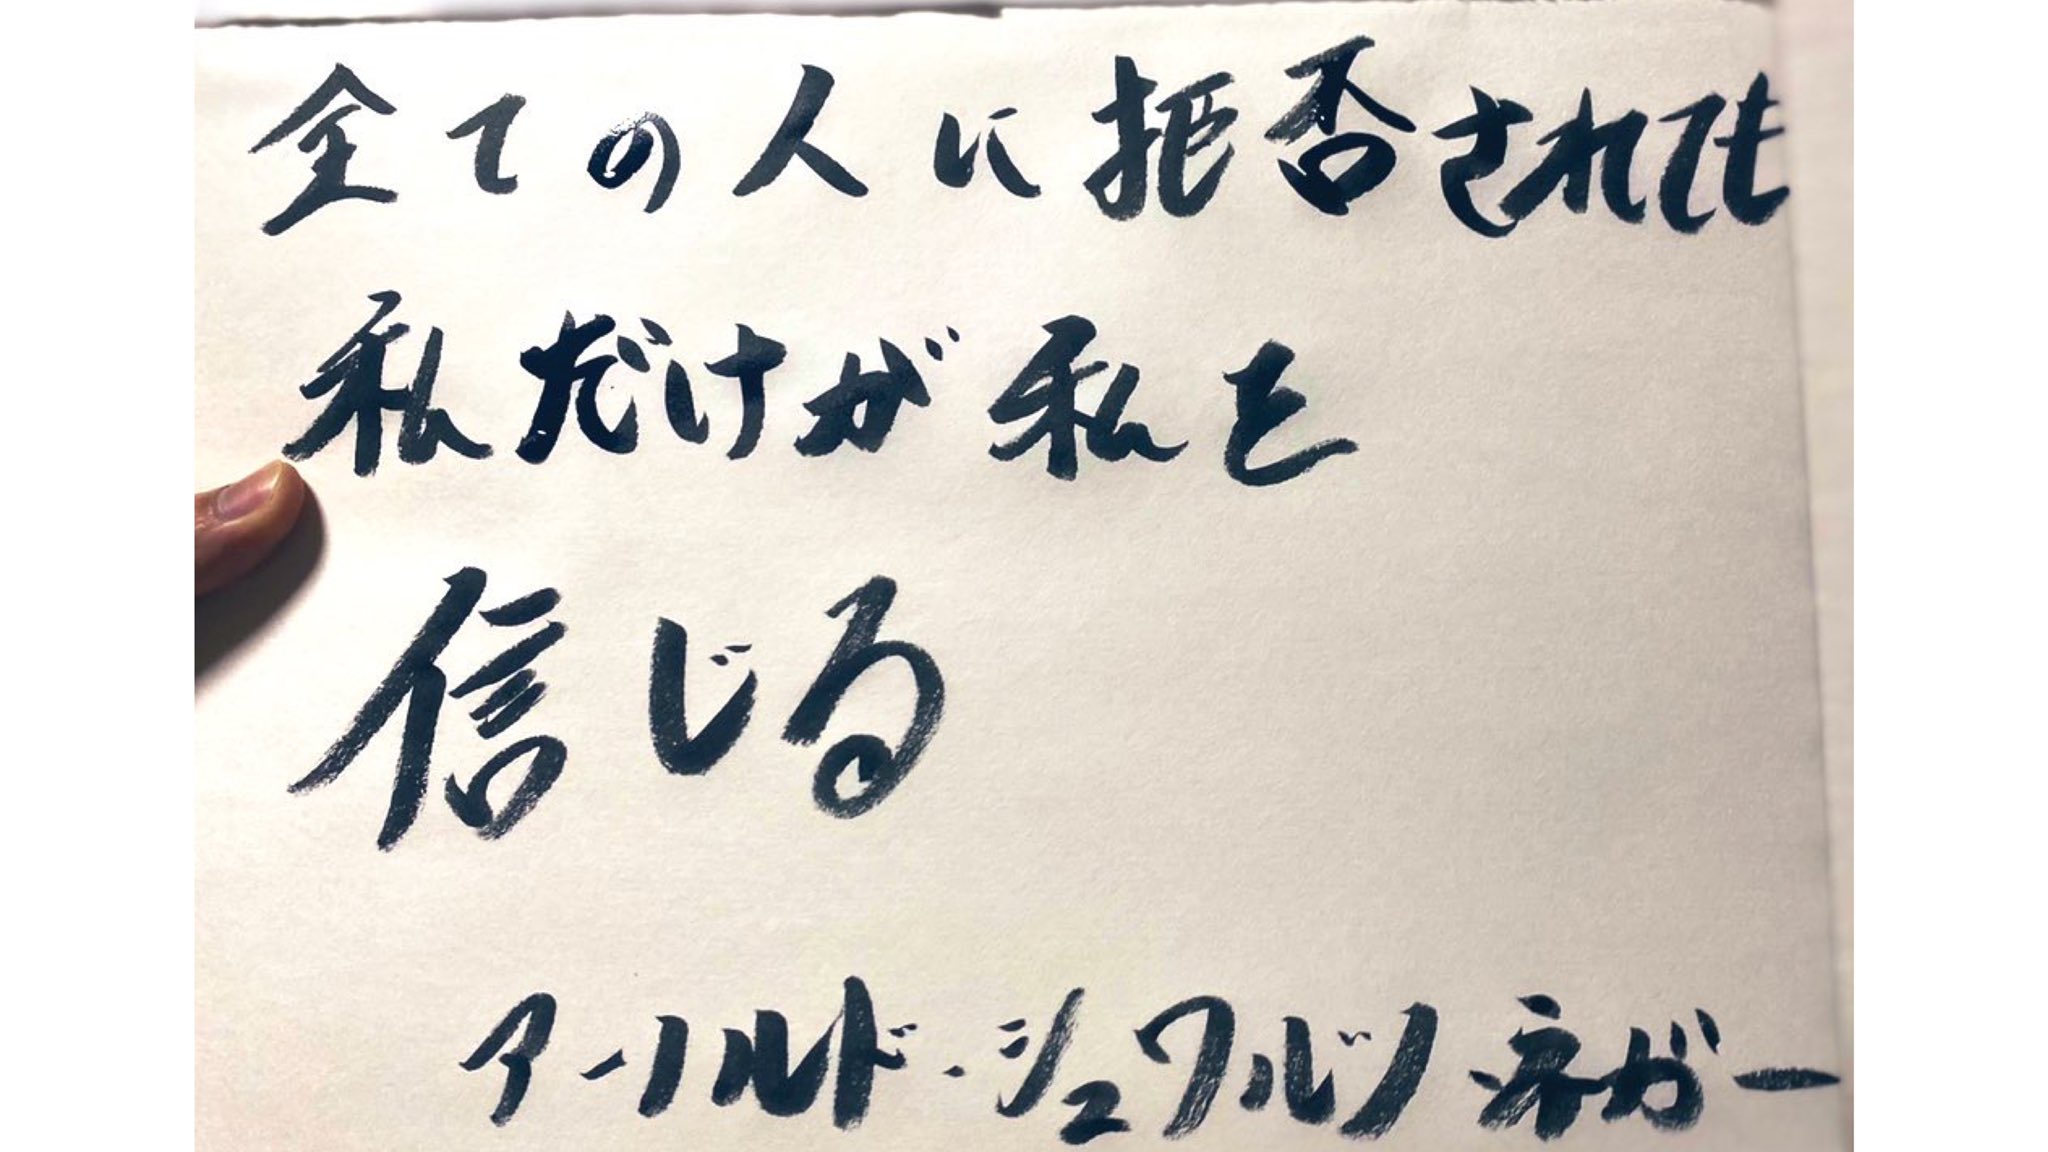 全ての人に拒否されても
私だけが私を
信じる
アーノルド・シュワルツネガー